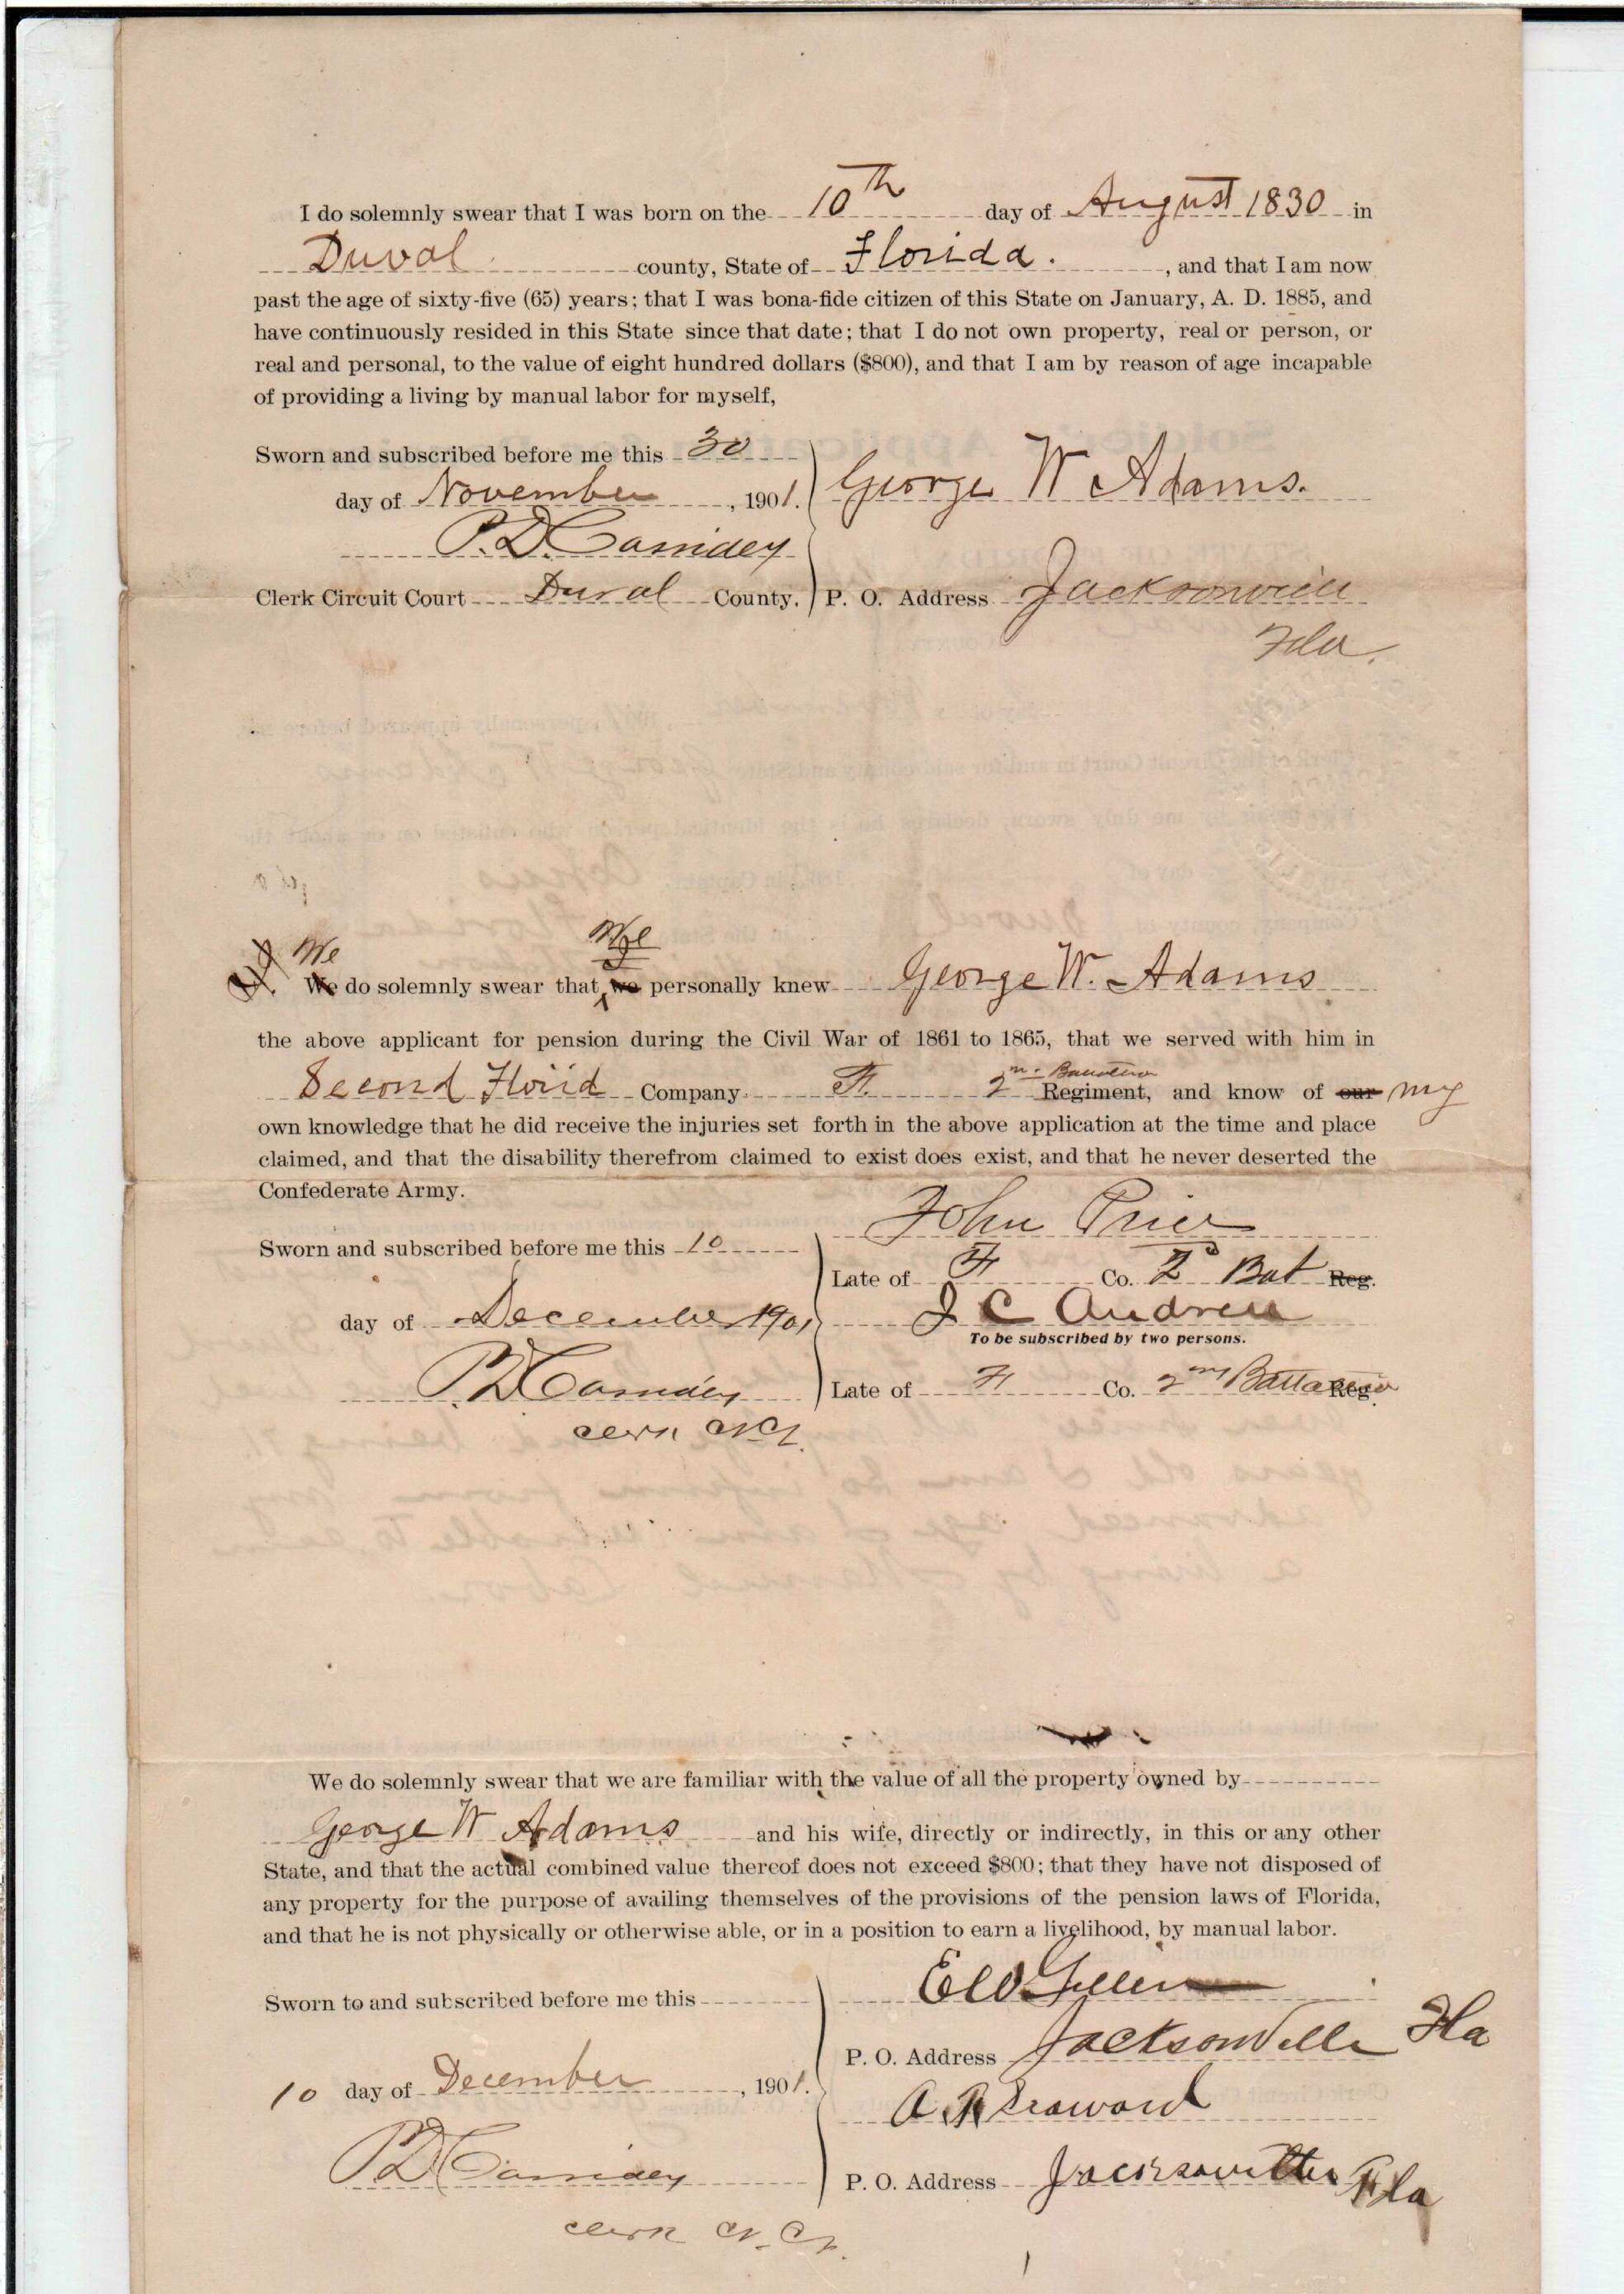 I do solemnly swear that I was born on the 10th day of August 1830 in
Duval county, State of Florida. , and that I am now
past the age of sixty-five (65) years; that I was bona-fide citizen of this State on January, A. D. 1885, and
have continuously resided in this State since that date; that I do not own property, real or person, or
real and personal, to the value of eight hundred dollars ($800), and that I am by reason of age incapable
of providing a living by manual labor for myself,
Sworn and subscribed before me this 30
day of November , 1901. George W Adams.
P. D. Cassidey
Clerk Circuit Court Duval County. P. O. Address Jacksonville
Fla.
We We
We do solemnly swear that we personally knew George W. Adams
the above applicant for pension during the Civil War of 1861 to 1865, that we served with him in
2nd Battalion
Second Florid Company F. Regiment, and know of our my
own knowledge that he did receive the injuries set forth in the above application at the time and place
claimed, and that the disability therefrom claimed to exist does exist, and that he never deserted the
Confederate Army.
John Price
Sworn and subscribed before me this 10
Late of F Co. 2d Bat Reg.
day of December 1901 J C Andreu
To be subscribed by two persons.
P D Cassidey Late of F Co. 2nd Battalion Reg.
Clerk
We do solemnly swear that we are familiar with the value of all the property owned by
George W Adams and his wife, directly or indirectly, in this or any other
State, and that the actual combined value thereof does not exceed $800; that they have not disposed of
any property for the purpose of availing themselves of the provisions of the pension laws of Florida,
and that he is not physically or otherwise able, or in a position to earn a livelihood, by manual labor.
Sworn to and subscribed before me this
P. O. Address Jacksonville Fla
10 day of December , 1901.
P D Cassidey P. O. Address Jacksonville Fla
Clerk